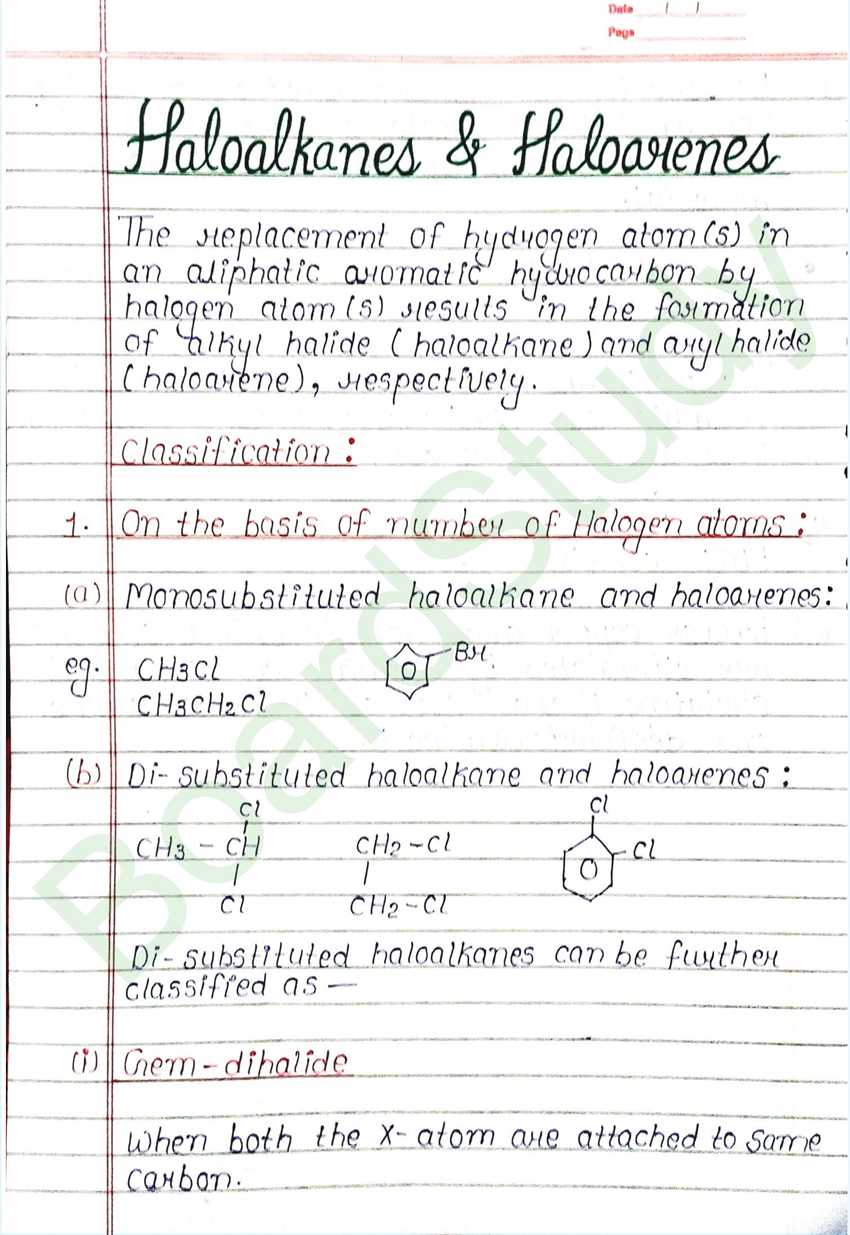 Date / /
Page
Haloalkanes & Haloarenes
The replacement of hydrogen atom(s) in
an aliphatic aromatic hydrocarbon by
halogen atom(s) results in the formation
of alkyl halide (haloalkane) and aryl halide
(haloarene), respectively.
Classification :
1. On the basis of number of Halogen atoms :
(a) Monosubstituted haloalkane and haloarenes:
eg. CH3Cl Br
CH3CH2Cl
(b) Di-substituted haloalkane and haloarenes :
Cl Cl
CH3 - CH CH2-Cl Cl
Cl CH2-Cl
Di-substituted haloalkanes can be further
classified as —
(i) Gem-dihalide
When both the X-atom are attached to same
carbon.
BoardStudy